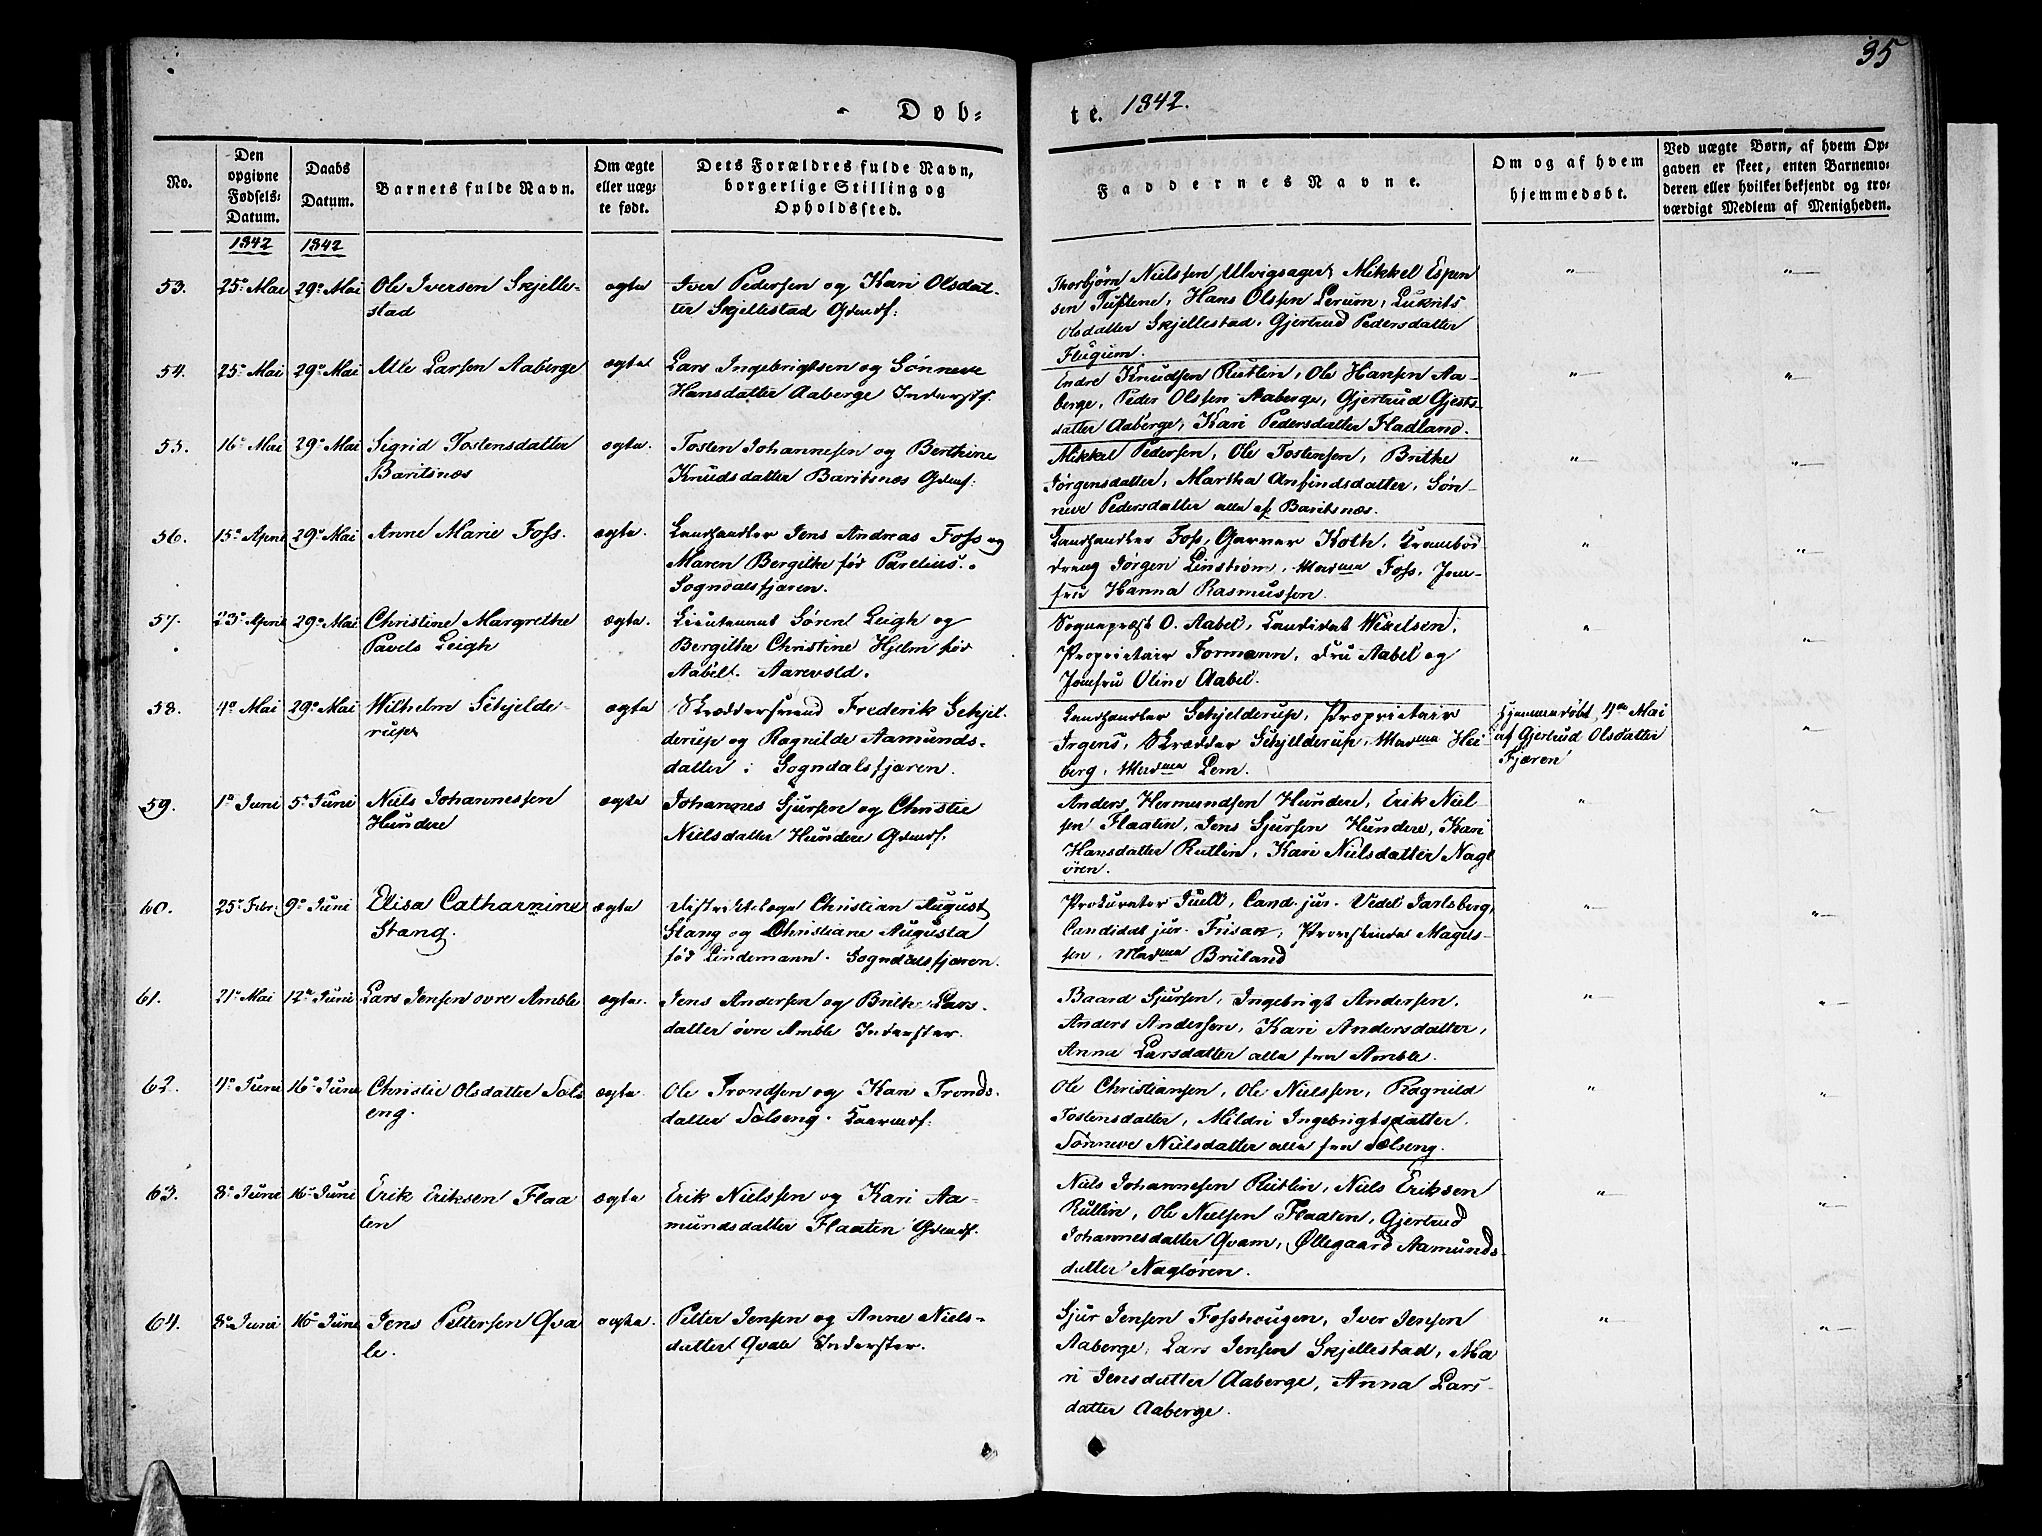 35
Døb=
te. 1842.
No.
Den
opgivne
Fødsels=
Datum.
Daabs
Datum.
Barnets fulde Navn.
Om ægte
eller uæg=
te født.
Dets Forældres fulde Navn,
borgerlige Stilling og
Opholdssted.
Faddernes Navne.
Om og af hvem
hjemmedøbt.
Ved uægte Børn, af hvem Op=
gaven er skeet, enten Barnemo=
deren eller hvilket bekjendt og tro=
værdigt Medlem af Menigheden.
1842 1842
53. 25de Mai 29de Mai Ole Iversen Skjelle-
stad
ægte
Iver Pedersen og Kari Olsdat-
ter Skjellestad Gdmdf:
Thorbjørn Nielsen Ulvigsager, Mikkel Espen
sen Tufstene, Hans Olssen Lerum, Lukrits
Olsdatter Skjellestad, Gjertrud Pedersdatter
Flugum.
54. 25de Mai 29de Mai Atle Larsen Aaberge
ægte
Lars Ingebrigtsen og Sønneve
Hansdatter Aaberge Inderstf.
Endre Knudsen Rutlin, Ole Hansen Aa-
berge, Peder Olssen Aaberge, Gjertrud Gjests-
datter Aaberge, Kari Pedersdatter Fladland.
55. 16de Mai 29de Mai Sigrid Tostensdatter
Baritsnæs
ægte.
Tosten Johannesen og Berthine
Knudsdatter Baritsnæs Gdmdf:
Mikkel Pedersen, Ole Tostensen, Brithe
Jørgensdatter, Martha Anfindsdatter, Søn-
neve Pedersdatter alle af Baritsnæs.
56. 15de April 29de Mai Anne Marie Foss.
ægte.
Landhandler Jens Andreas Foss og
Maren Bergithe født Parelius.
Sogndalsfjæren.
Landhandler Foss, Garver Koth, Krambod
dreng Jørgen Linstrøm, Madme Foss, Jom-
fru Hanna Rasmussen.
57. 23de April 29de Mai Christine Margrethe
Pavels Leigh
ægte.
Lieutenant Søren Leigh og
Bergithe Christine Hjelm født
Aabel. Aarevold.
Sognepræst O. Aabel, Candidat Wexelsen,
Proprietair Formann, Fru Aabel og
Jomfru Oline Aabel.
58. 4de Mai 29de Mai Wilhelm Schjelde-
rup
ægte
Skræddersvend Frederik Schjel-
derup og Ragnilde Aamunds-
datter i Sogndalsfjæren.
Landhandler Schjelderup, Proprietair
Irgens, Skrædder Schjelderup, Madme Hei-
berg, Madme Lem.
Hjemmedøbt 4de Mai
af Gjertrud Olsdatter
Fjæren
59. 1de Juni 5te Juni Niels Johannessen
Hundere
ægte
Johannes Sjursen og Christie
Nielsdatter Hundere Gdmdf.
Anders Hermundsen Hundere, Erik Niel-
sen Flaaten, Jens Sjursen Hundere, Kari
Hansdatter Rutlin, Kari Nielsdatter Nagl
øren.
60. 25de Febr. 9de Juni Elisa Catharnine
Stang.
ægte
Distriktslæge Christian August
Stang og Christiane Augusta
født Lindemann. Sogndalsfjæren.
Prokurator Juell, Cand. jur. Vedel Jarlsberg,
Candidat jur. Frisak, Provstinde Magels-
sen, Madme Bruland
61. 21de Mai 12te Juni Lars Jensen øvre Amble
ægte.
Jens Andersen og Brithe Lars-
datter øvre Amble Inderster.
Baard Sjursen, Ingebrigt Andersen,
Anders Andersen, Kari Andersdatter,
Anna Larsdatter alle fra Amble.
62. 4de Juni 16de Juni Christie Olsdatter Sæls
eng.
ægte.
Ole Trondsen og Kari Tronds-
datter Sælseng. Kaarmdf:
Ole Christiansen, Ole Nielssen, Ragnild
Tostensdatter, Mildri Ingebrigtsdatter.
Sønneve Nielsdatter alle fra Sælseng.
63. 8de Juni 16de Juni Erik Eriksen Flaa
ten
ægte
Erik Nielssen og Kari Aa-
mundsdatter Flaaten Gdmdf.
Niels Johannesen Rutlin, Niels Eriksen
Rutlin, Ole Nielsen Flaaten, Gjertrud
Johannesdatter Qvam, Øllegaard Aamunds-
datter Nagløren.
64. 8de Juni 16de Juni Jens Pettersen Qva
le.
ægte.
Petter Jensen og Anne Niels-
datter Qvale Inderster.
Sjur Jensen Fosshaugen, Iver Jensen
Aaberge, Lars Jensen Skjellestad, Ma
ri Jensdatter Aaberge, Anna Lars-
datter Aaberge.